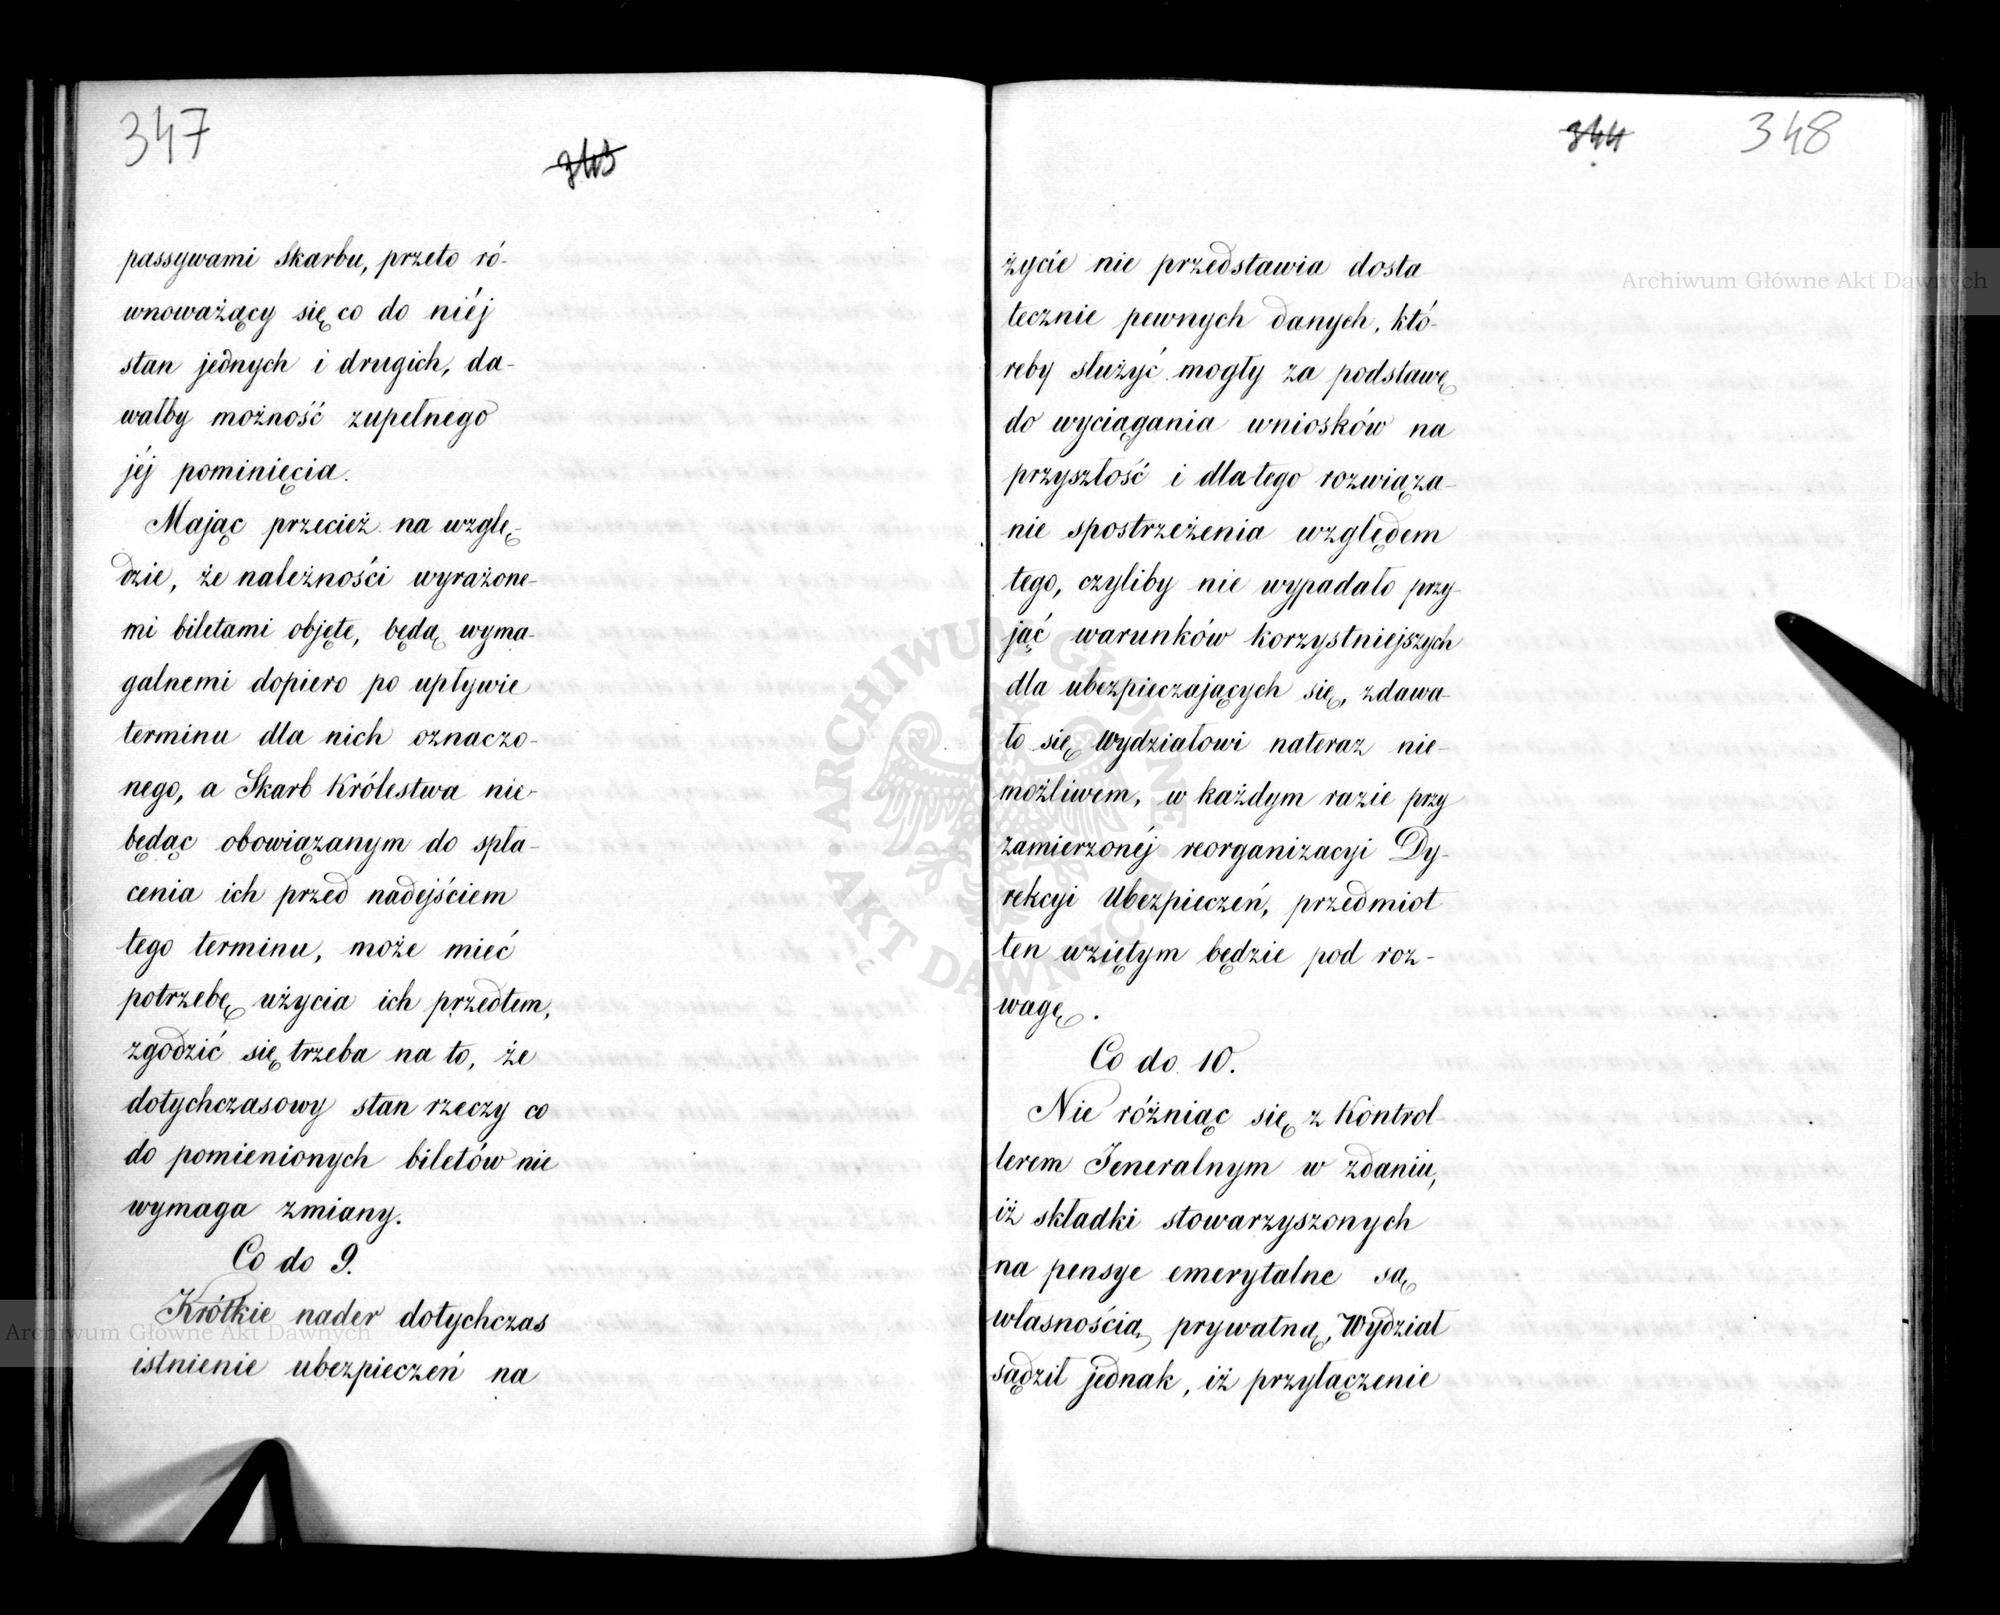 347
343
passywami Skarbu, przeto ró-
wnoważący się co do niéj
stan jednych i drugich, da-
wałby możność zupełnego
jéj pominięcia.
Mając przecież na wzglę-
dzie, że należności wyrażone-
mi biletami objęte, będą wyma-
galnemi dopiero po upływie
terminu dla nich oznaczo-
nego, a Skarb Królestwa nie-
będąc obowiązanym do spła-
cenia ich przed nadejściem
tego terminu, może mieć
potrzebę użycia ich przedtem,
zgodzić się trzeba na to, że
dotychczasowy stan rzeczy co
do pomienionych biletów nie
wymaga zmiany.
Co do 9.
Krótkie nader dotychczas
istnienie ubezpieczeń na
344
348
życie nie przedstawia dosta-
tecznie pewnych danych, któ-
reby służyć mogły za podstawę
do wyciągania wniosków na
przyszłość i dlatego rozwiąza-
nie spostrzeżenia względem
tego, czyliby nie wypadało przy-
jąć warunków korzystniejszych
dla ubezpieczających się, zdawa-
ło się Wydziałowi nateraz nie-
możliwem, w każdym razie przy
zamierzonéj reorganizacyi Dy-
rekcyi Ubezpieczeń, przedmiot
ten wziętym będzie pod roz-
wagę.
Co do 10.
Nie różniąc się z Kontrol-
lerem Jeneralnym w zdaniu,
iż składki stowarzyszonych
na pensye emerytalne są
własnością prywatną, Wydział
sądził jednak, iż przyłączenie
Archiwum Główne Akt Dawnych
ARCHIWUM GŁÓWNE AKT DAWNYCH
Archiwum Główne Akt Dawnych